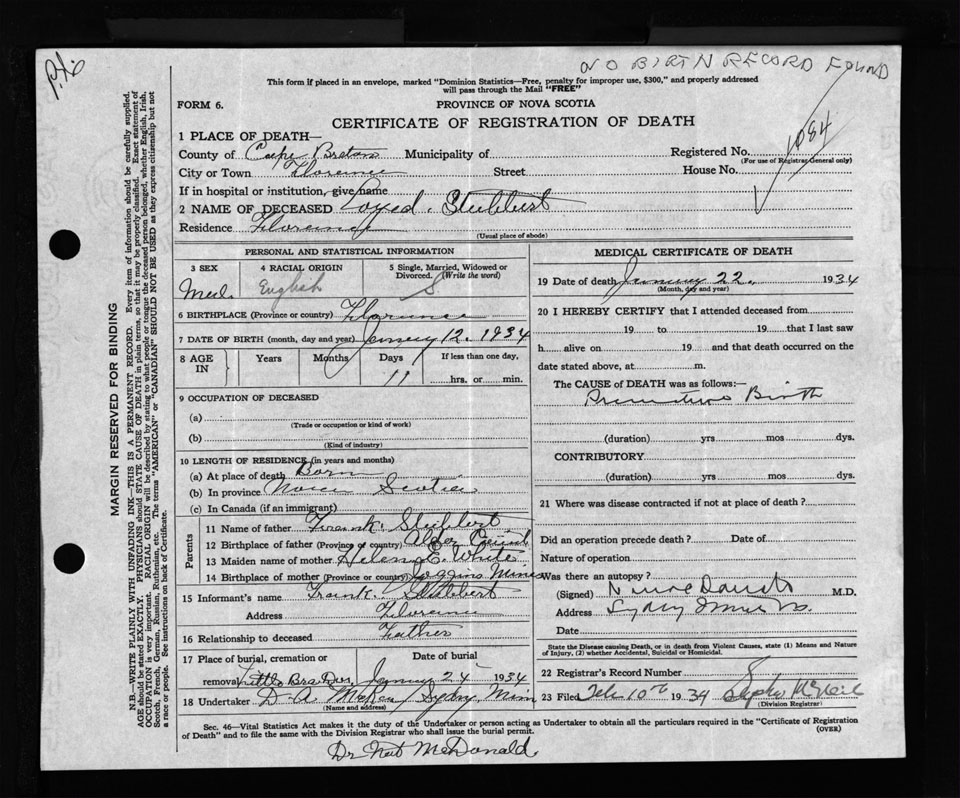 NO BIRTH RECORD FOUND
This form if placed in an envelope, marked "Dominion Statistics—Free, penalty for improper use, $300," and properly addressed
will pass through the Mail "FREE"
FORM 6.
PROVINCE OF NOVA SCOTIA
CERTIFICATE OF REGISTRATION OF DEATH
1084
1 PLACE OF DEATH—
County of Cape Breton Municipality of
Registered No.
(For use of Registrar General only)
City or Town Florence Street House No.
If in hospital or institution, give name
2 NAME OF DECEASED Stubbert
Residence Florence
(Usual place of abode)
PERSONAL AND STATISTICAL INFORMATION
3 SEX
4 RACIAL ORIGIN
5 Single, Married, Widowed or
Divorced. (Write the word)
English S
6 BIRTHPLACE (Province or country) Florence
7 DATE OF BIRTH (month, day and year) January 12. 1934
8 AGE
IN
Years
Months
Days
If less than one day,
11
hrs. or min.
9 OCCUPATION OF DECEASED
(a)
(Trade or occupation or kind of work)
(b)
(Kind of industry)
10 LENGTH OF RESIDENCE (in years and months)
(a) At place of death Born
(b) In province Nova Scotia
(c) In Canada (if an immigrant)
Parents
11 Name of father Frank. Stubbert
12 Birthplace of father (Province or country) Alder Point
13 Maiden name of mother Helena E. White
14 Birthplace of mother (Province or country) Joggins Mines
15 Informant's name Frank. Stubbert
Address Florence
16 Relationship to deceased Father
17 Place of burial, cremation or
removal Little Bras D'or
Date of burial
January 24 1934
18 Undertaker D. A. McKay Sydney Mines
(Name and address)
MEDICAL CERTIFICATE OF DEATH
19 Date of death January 22. 1934
(Month, day and year)
20 I HEREBY CERTIFY that I attended deceased from
19 to 19 that I last saw
h alive on 19 and that death occurred on the
date stated above, at m.
The CAUSE of DEATH was as follows:—
Premature Birth
(duration) yrs mos dys.
CONTRIBUTORY
(duration) yrs mos dys.
21 Where was disease contracted if not at place of death?
Did an operation precede death? Date of
Nature of operation
Was there an autopsy?
(Signed) M.D.
Address Sydney Mines
Date
State the Disease causing Death, or in death from Violent Causes, state (1) Means and Nature
of Injury, (2) whether Accidental, Suicidal or Homicidal.
22 Registrar's Record Number
23 Filed Feb 10th 1934 Stephen McNeil
(Division Registrar)
Sec. 46—Vital Statistics Act makes it the duty of the Undertaker or person acting as Undertaker to obtain all the particulars required in the "Certificate of Registration
of Death" and to file the same with the Division Registrar who shall issue the burial permit.
(OVER)
Dr Nat McDonald.
MARGIN RESERVED FOR BINDING
N.B.—WRITE PLAINLY WITH UNFADING INK—THIS IS A PERMANENT RECORD. Every item of information should be carefully supplied.
AGE should be stated EXACTLY. PHYSICIANS should STATE CAUSE OF DEATH in plain terms, so that it may be properly classified. Exact statement of
OCCUPATION is very important. RACIAL ORIGIN will be described by stating to what people or tongue the deceased person belonged, whether English, Irish,
Scotch, French, German, Russian, Ruthenian, etc. The terms "AMERICAN" or "CANADIAN" SHOULD NOT BE USED as they express citizenship but not
a race or people. See instructions on back of Certificate.